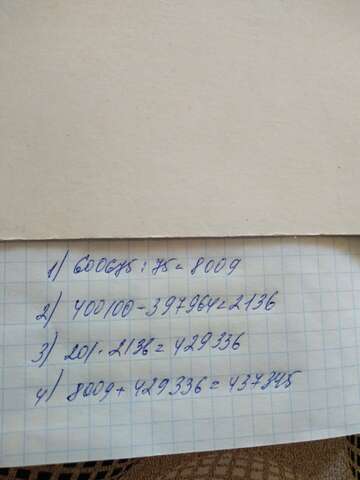 1) 600675 : 75 = 8009
2) 400100 - 397964 = 2136
3) 201 · 2136 = 429336
4) 8009 + 429336 = 437345